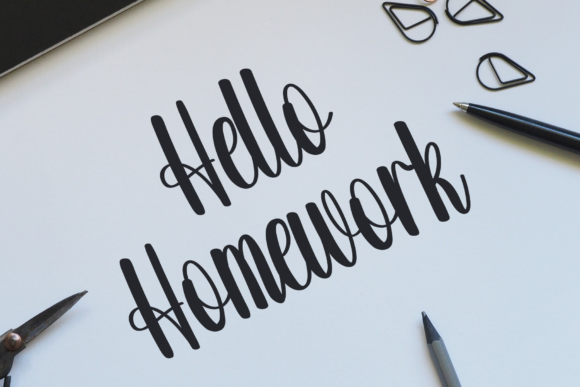 Hello
Homework